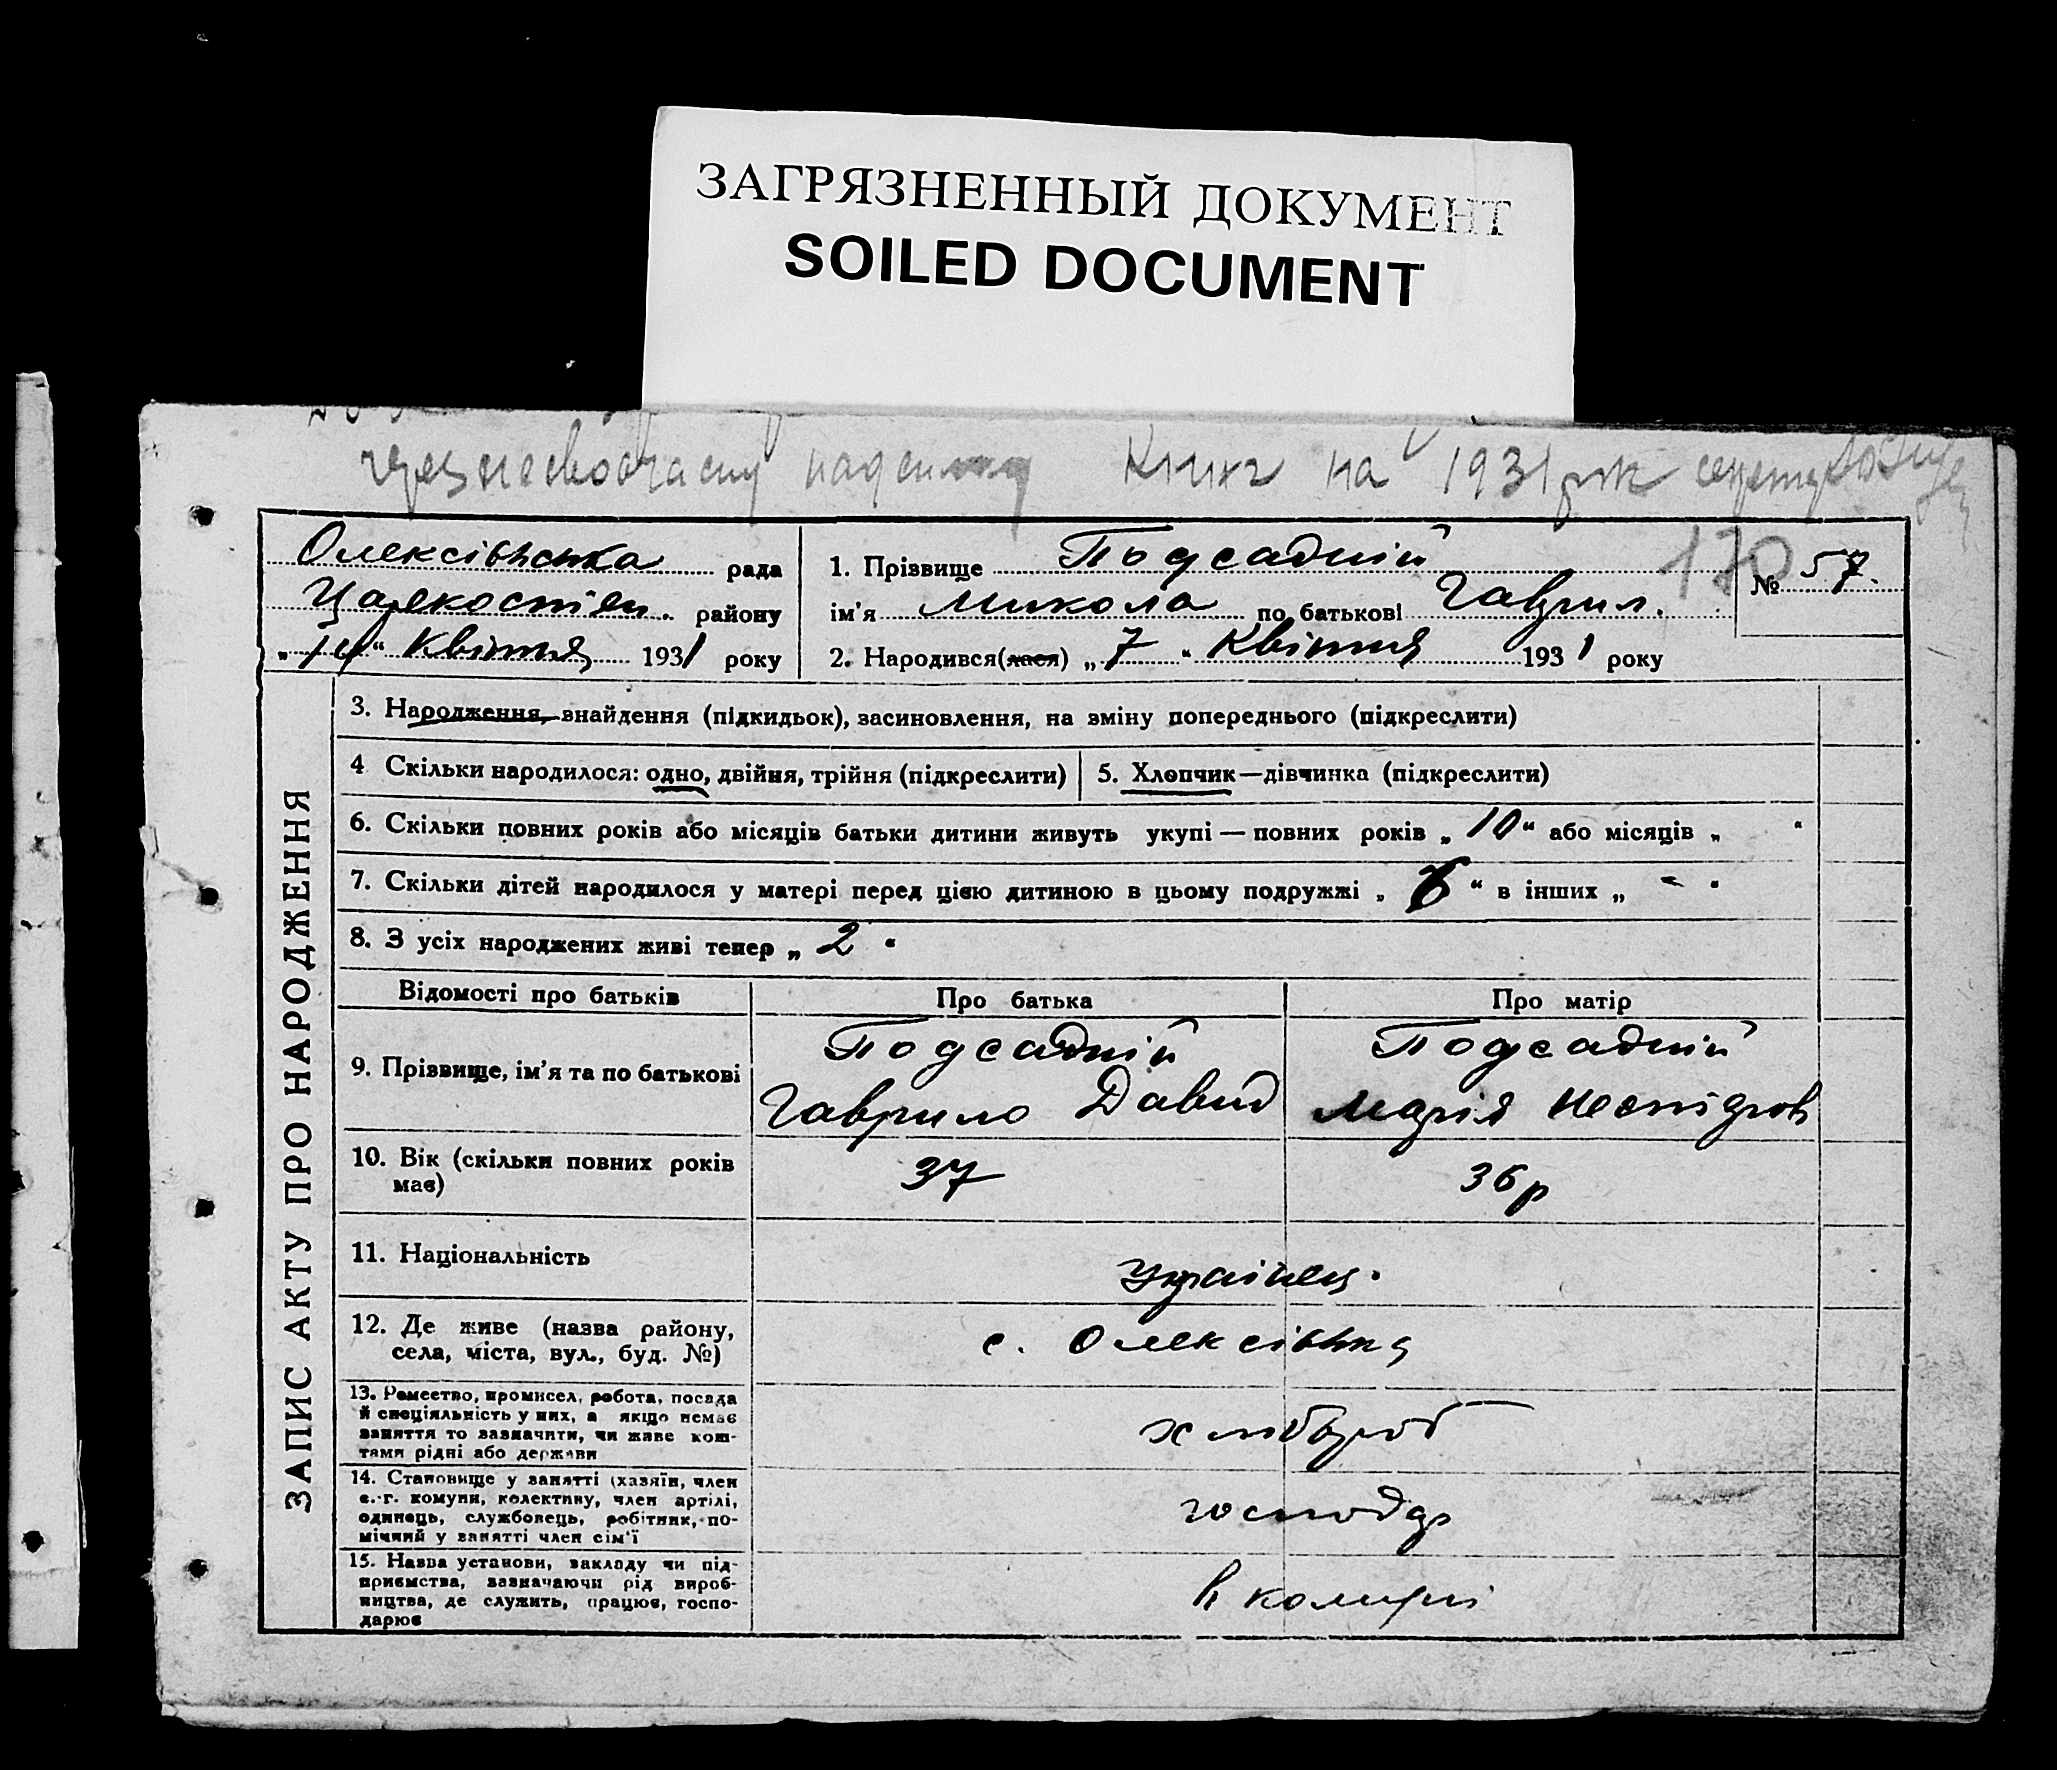 ЗАГРЯЗНЕННЫЙ ДОКУМЕНТ
SOILED DOCUMENT
Книг на 1931 рік
170
Олексівська рада
району
"14" Квітня 1931 року
1. Прізвище Подсадній
ім'я Микола по батькові Гаврил.
2. Народився(лася) „7" Квітня 1931 року
№ 57.
ЗАПИС АКТУ ПРО НАРОДЖЕННЯ
3. Народження, знайдення (підкидьок), засиновлення, на зміну попереднього (підкреслити)
4 Скільки народилося: одно, двійня, трійня (підкреслити)
5. Хлопчик—дівчинка (підкреслити)
6. Скільки повних років або місяців батьки дитини живуть укупі — повних років „10" або місяців „ "
7. Скільки дітей народилося у матері перед цією дитиною в цьому подружжі „ " в інших „ - "
8. З усіх народжених живі тепер „2"
Відомості про батьків
Про батька
Про матір
9. Прізвище, ім'я та по батькові
Подсадній
Гаврило Давид
Подсадній
Марія
10. Вік (скільки повних років
має)
37
36р
11. Національність
Українец.
12. Де живе (назва району,
села, міста, вул., буд. №)
с. Олексівка
13. Ремество, промисел, робота, посада
й спеціяльність у них, а якщо немає
заняття то зазначити, чи живе кош-
тами рідні або держави
хлібороб
14. Становище у занятті (хазяїн, член
с.-г. комуни, колективу, член артілі,
одинець, службовець, робітник, по-
мічний у занятті член сім'ї
господар
15. Назва установи, закладу чи під-
приємства, зазначаючи рід вироб-
ництва, де служить, працює, госпо-
дарює